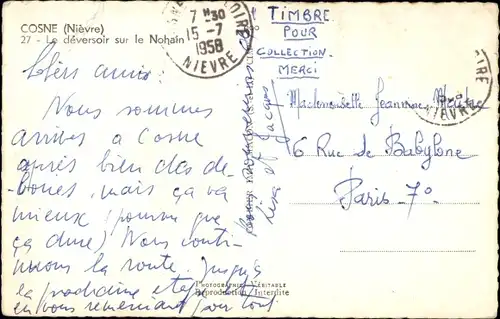 COSNE (Nièvre)
27 - Le déversoir sur le Nohain
LOIRE
7 H 30
15 -7
1958
NIEVRE
TIMBRE
POUR
COLLECTION.
MERCI
NIEVRE
Chers amis
Nous sommes
arrivés à Cosne
après bien des dé-
boires, mais ça va
mieux (pourvu que
ça dure) Nous conti-
nuons la route. jusqu'à
la prochaine étape
en vous remerciant pour tout
Lisa et Jacques
Mademoiselle Jeannine
6 Rue de Babylone
Paris - 7°
PHOTOGRAPHIE VÉRITABLE
Reproduction Interdite